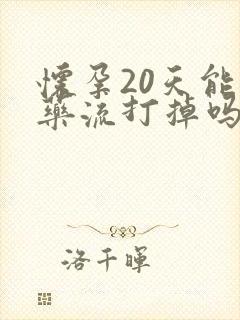 懷孕20天能
藥流打掉嗎
洛千暉